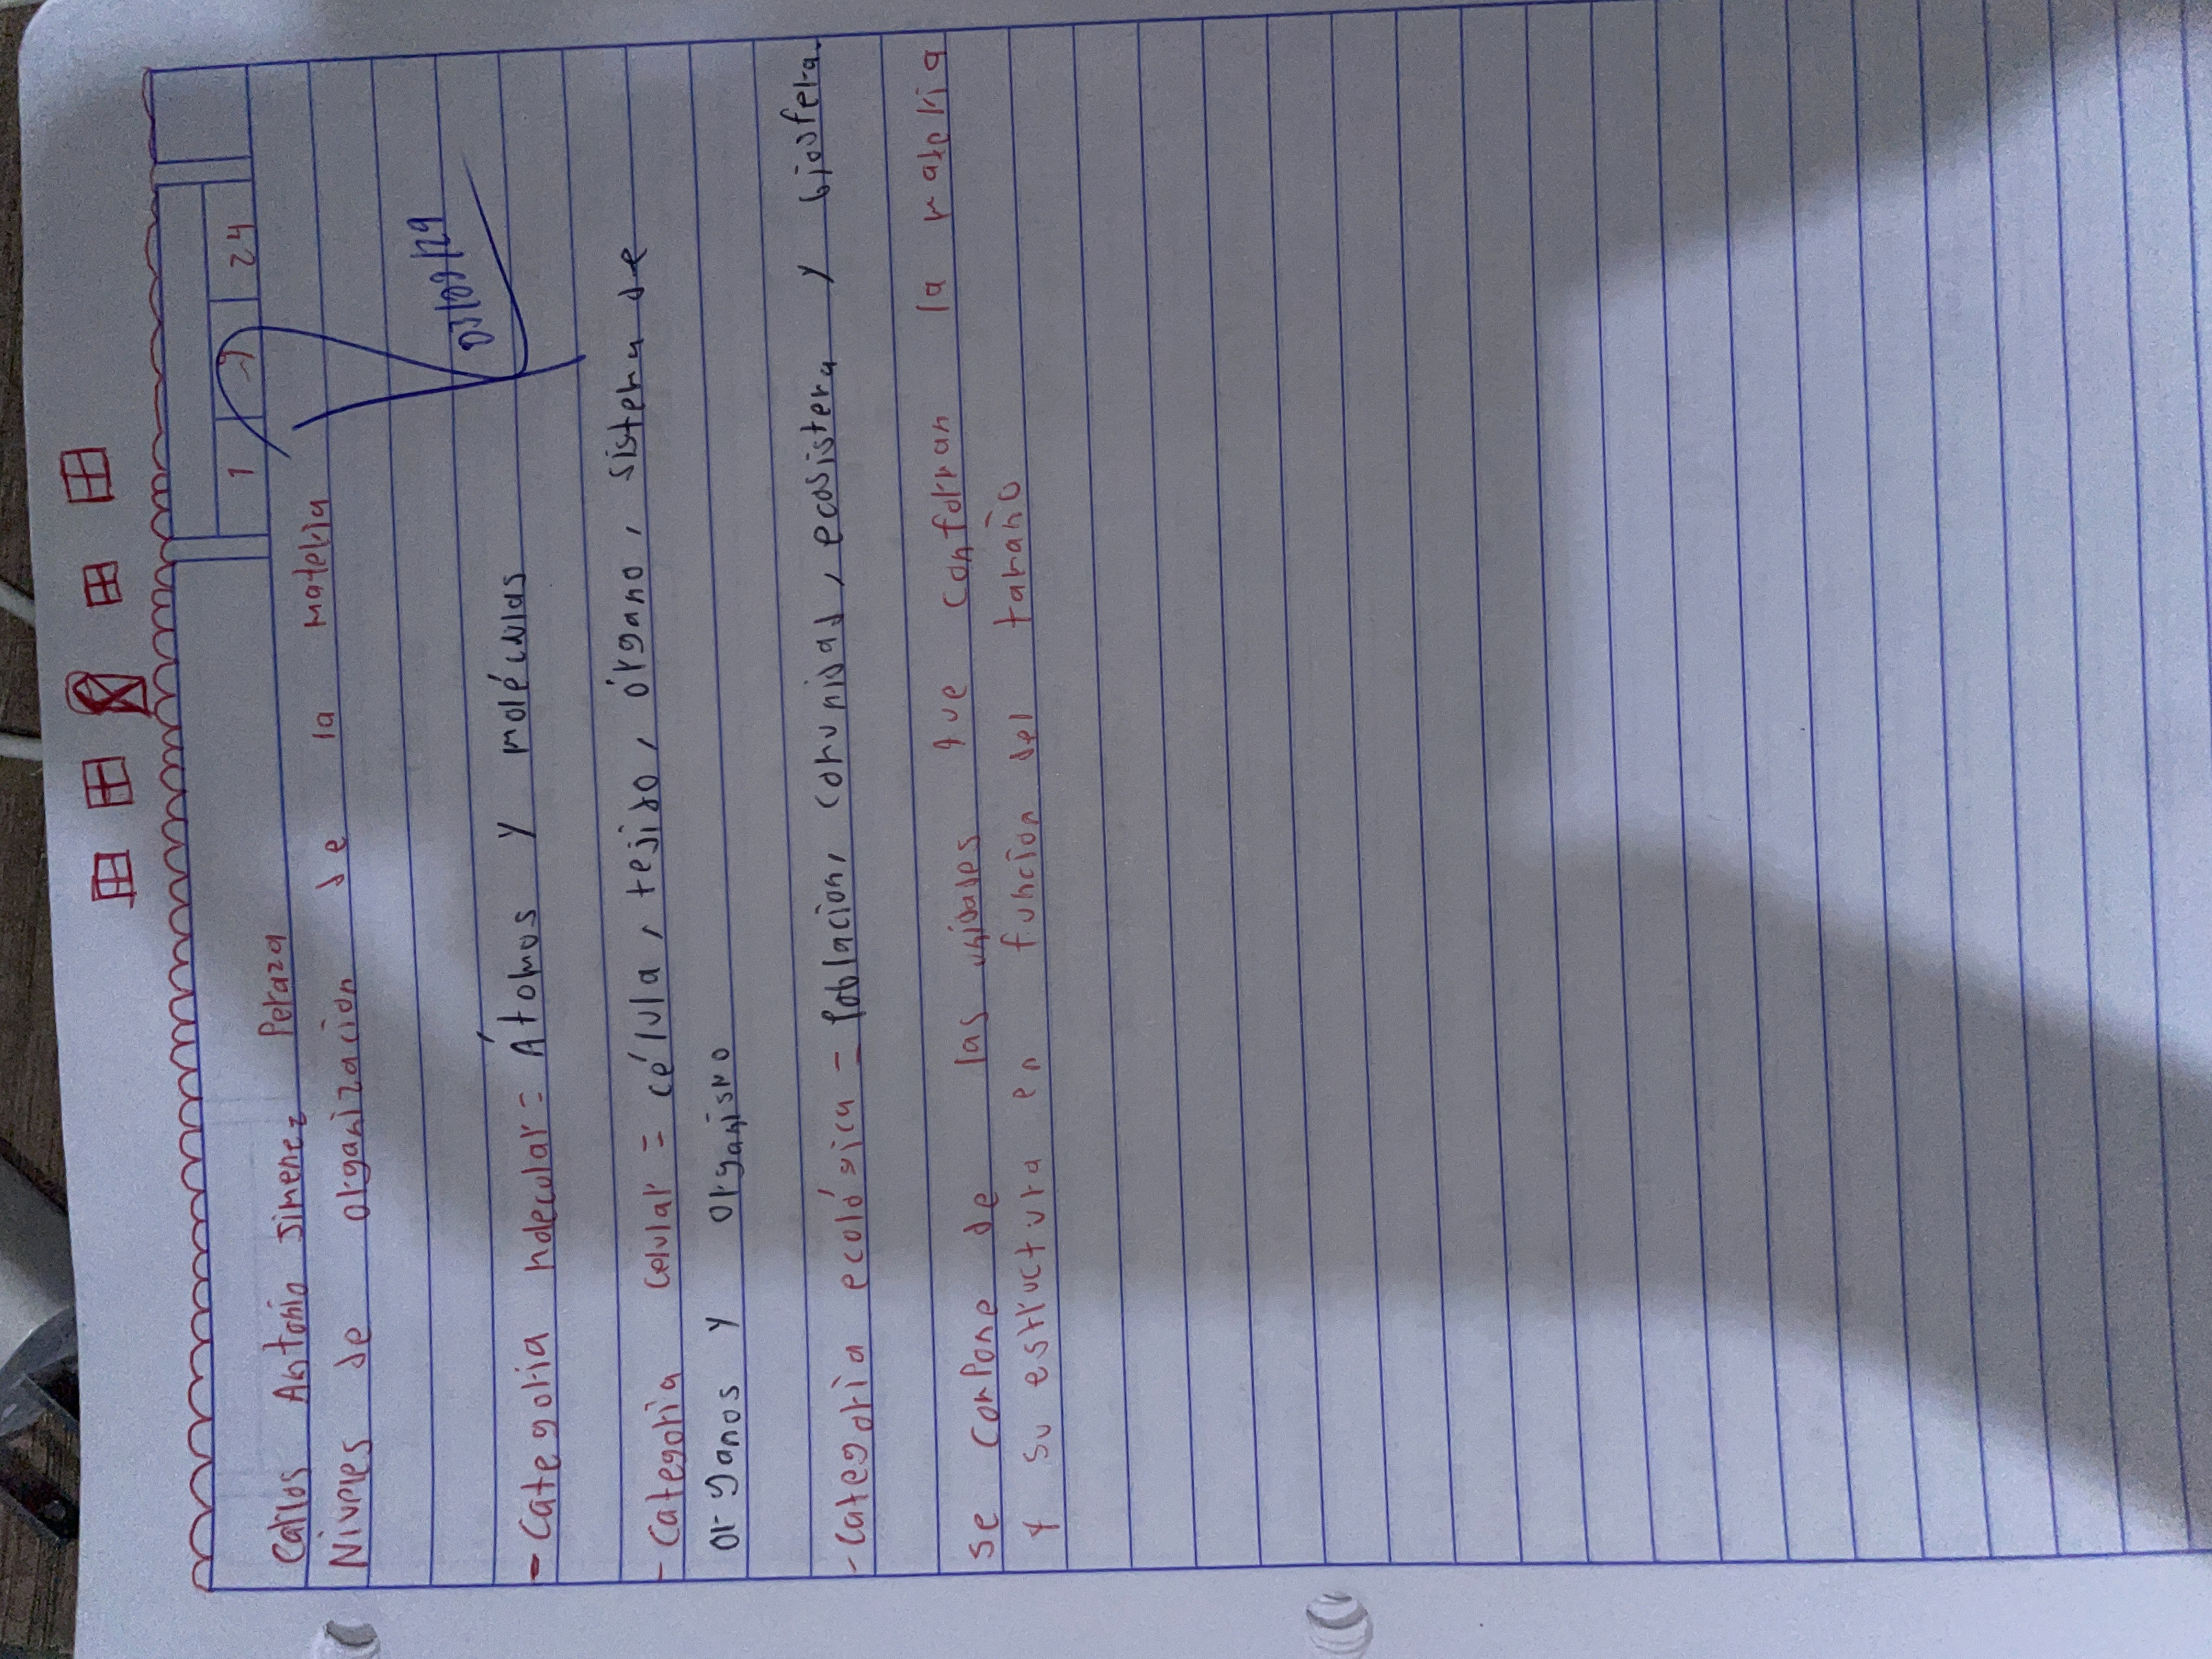 1 9 24
Carlos Antonio Jimenez Peraza
Niveles de organizacion de la materia
03/09/24
- Categoria molecular = Átomos y moléculas
- Categoria celular = célula, tejido, órgano, sistema de
organos y organismo
- Categoria ecológica = Poblacion, comunidad, ecosistema y biosfera.
se compone de las unidades que conforman la materia
y su estructura en funcion del tamaño